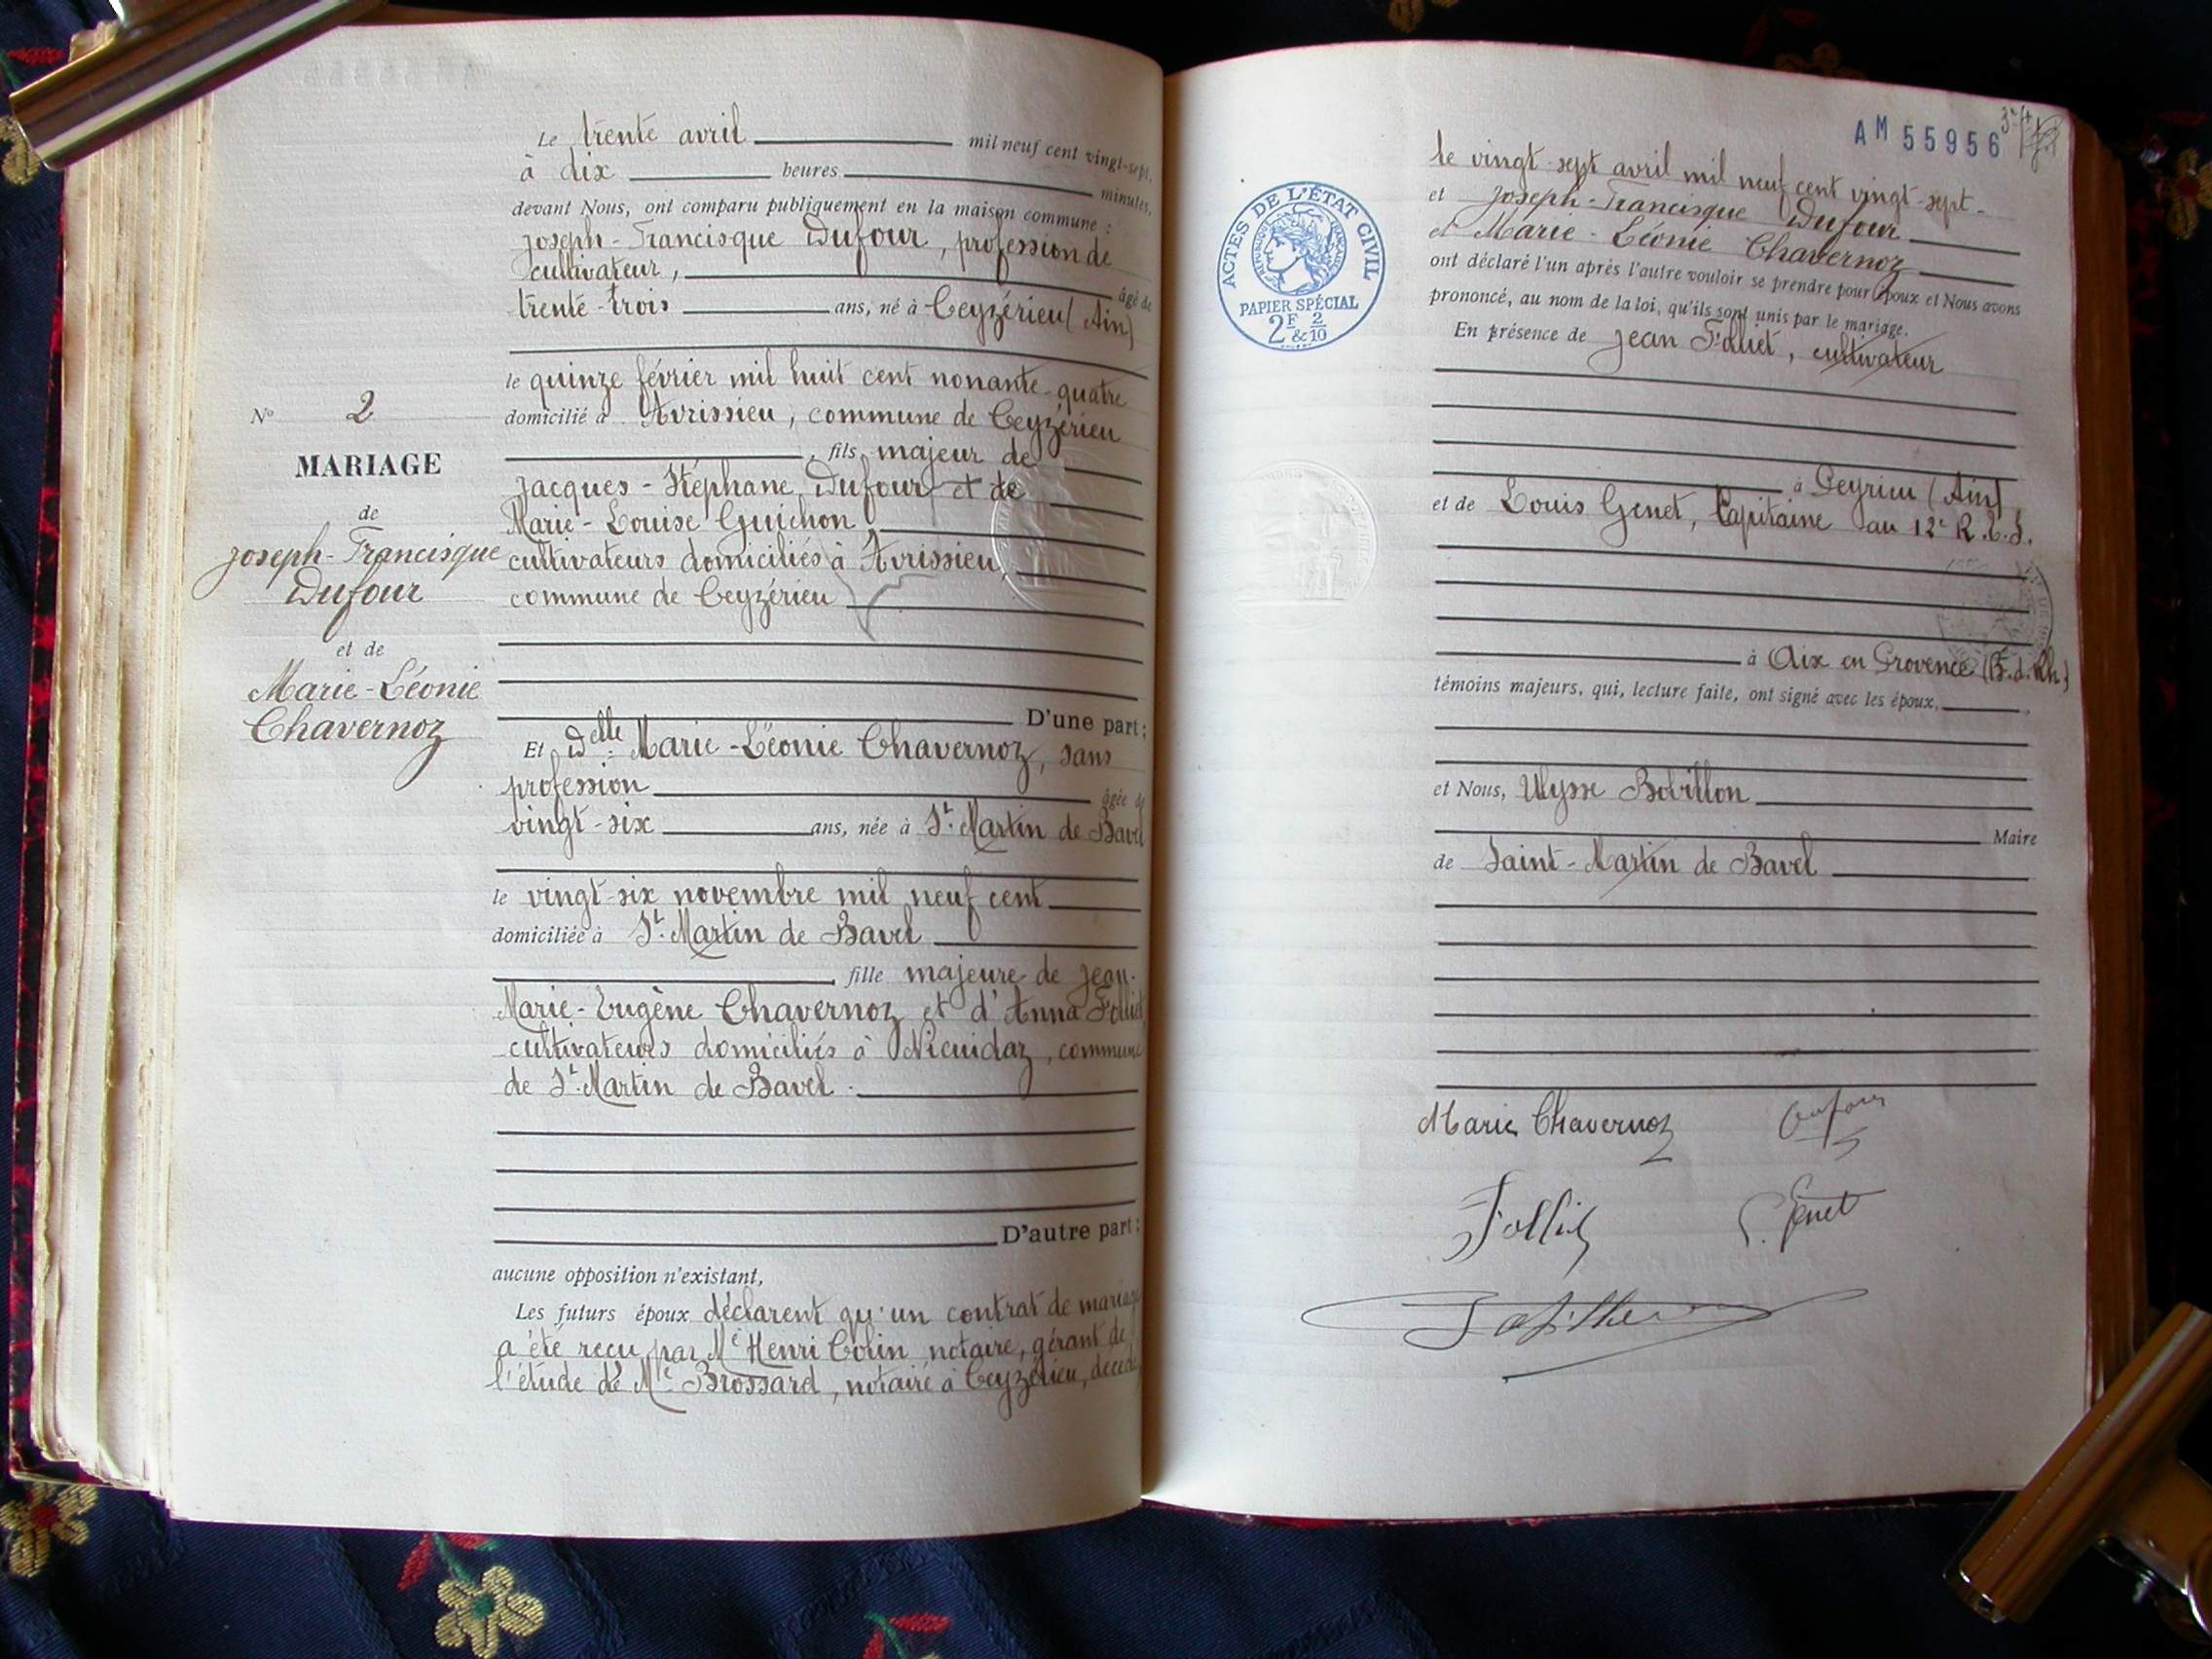 Le trente avril mil neuf cent vingt-sept,
à dix heures minutes,
devant Nous, ont comparu publiquement en la maison commune :
Joseph-Francisque Dufour, profession de
cultivateur, âgé de
trente-trois ans, né à Ceyzérieu (Ain)
le quinze février mil huit cent nonante-quatre
domicilié à Avrissieu, commune de Ceyzérieu
, fils majeur de
Jacques-Stéphane Dufour et de
Marie-Louise Guichon,
cultivateurs domiciliés à Avrissieu,
commune de Ceyzérieu
D'une part ;
Et Delle Marie-Léonie Chavernoz, sans
profession âgée de
vingt-six ans, née à St. Martin de Bavel
le vingt-six novembre mil neuf cent
domiciliée à St. Martin de Bavel
fille majeure de Jean-
Marie-Eugène Chavernoz et d'Anna Folliet
cultivateurs domiciliés à, commune
de St. Martin de Bavel.
D'autre part ;
aucune opposition n'existant,
Les futurs époux déclarent qu'un contrat de mariage
a été reçu par Me Henri Colin notaire, gérant de
l'étude de Me Brossard, notaire à Ceyzérieu, décédé
No 2
MARIAGE
de
Joseph-Francisque
Dufour
et de
Marie-Léonie
Chavernoz
AM 55956
le vingt-sept avril mil neuf cent vingt-sept-
et Joseph-Francisque Dufour
et Marie-Léonie Chavernoz
ont déclaré l'un après l'autre vouloir se prendre pour époux et Nous avons
prononcé, au nom de la loi, qu'ils sont unis par le mariage.
En présence de Jean Folliet, cultivateur
à Peyrieu (Ain),
et de Louis Genet, Capitaine au 12e R.
à Aix en Provence (B.d.Rh.)
témoins majeurs, qui, lecture faite, ont signé avec les époux,
et Nous, Ulysse Bobillon
Maire
de Saint-Martin de Bavel
ACTES DE L'ÉTAT CIVIL
RÉPUBLIQUE FRANÇAISE
PAPIER SPÉCIAL
2F & 2/10
Marie Chavernoz
Dufour
Folliet
L. Genet